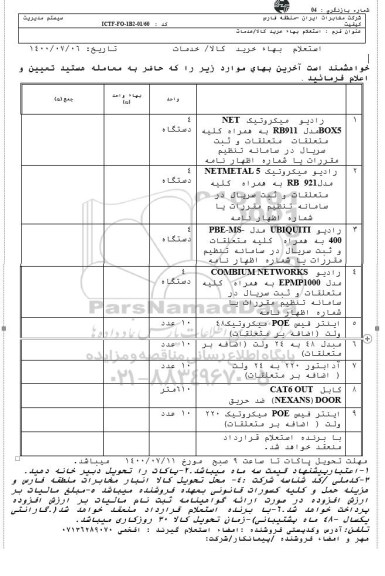 شماره بازنگری : 04
شرکت مخابرات ایران -منطقه فارس
سیستم مدیریت
کیفیت
کد : ICTF-FO-IB2-01/60
عنوان فرم : استعلام بهاء خرید کالا/خدمات
استعلام بهاء خرید کالا/ خدمات تاریخ: ۱۴۰۰/۰۷/۰۶
خواهشمند است آخرین بهای موارد زیر را که حاضر به معامله هستید تعیین و
اعلام فرمائید .
واحد
بهاء واحد
جمع
۱ رادیو میکروتیک NET ۴
BOX5مدل RB911 به همراه کلیه دستگاه
متعلقات متعلقات و ثبت
سریال در سامانه تنظیم
مقررات با شماره اظهار نامه
۲ رادیو میکروتیک NETMETAL 5 ۴
مدلRB 921 به همراه کلیه دستگاه
متعلقات و ثبت سریال در
سامانه تنظیم مقررات با
شماره اظهار نامه
۳ رادیو UBIQUITI مدل PBE-MS- ۴
400 به همراه کلیه متعلقات دستگاه
و ثبت سریال در سامانه تنظیم
مقررات با شماره اظهار نامه
۴ رادیو COMBIUM NETWORKS ۴
مدل EPMP1000 به همراه کلیه دستگاه
متعلقات و ثبت سریال در
سامانه تنظیم مقررات با
شماره اظهار نامه
۵ اینتر فیس POE میکروتیک۴۸ ۱۰ عدد
ولت ( اضافه بر متعلقات)
۶ مبدل ۴۸ به ۲۴ ولت (اضافه بر ۱۰ عدد
متعلقات)
۷ آداپتور ۲۲۰ به ۲۴ ولت ۱۰ عدد
( اضافه بر متعلقات)
۸ کابل CAT6 OUT ۶۱۰متر
DOOR (NEXANS) ضد حریق
۹ اینتر فیس POE میکروتیک ۲۲۰ ۱۰ عدد
ولت ( اضافه بر متعلقات)
با برنده استعلام قرارداد
منعقد خواهد شد.
ParsNamadData
۰۲۱-۸۸۳۴۹۶۷۰
مهلت تحویل پاکات تا ساعت ۹ صبح مورخ ۱۴۰۰/۰۷/۱۱ میباشد.
۱-اعتبارپیشنهاد قیمت سه ماه میباشد.۲-پاکات را تحویل دبیر خانه دهید.
۳-کدملی /کد شناسه شرکت :۴- محل تحویل کالا انبار مخابرات منطقه فارس و
هزینه حمل و کلیه کسورات قانونی بعهده فروشنده میباشد ۵-مبلغ مالیات بر
ارزش افزوده در صورت ارائه گواهینامه ثبت نام مالیات بر ارزش افزوده
پرداخت خواهد شد.۶-با برنده استعلام قرارداد منعقد خواهد شد(.گارانتی
یکسال -۴۸ ماه پشتیبانی)-زمان تحویل کالا ۳۰ روزکاری میباشد.
تلفن:آدرس وکدپستی فروشنده :امضاء استعلام گیرنده : افخمی ۰۷۱۳۲۲۸۹۰۷۰
مهر و امضاء فروشنده /پیمانکار/شرکت: